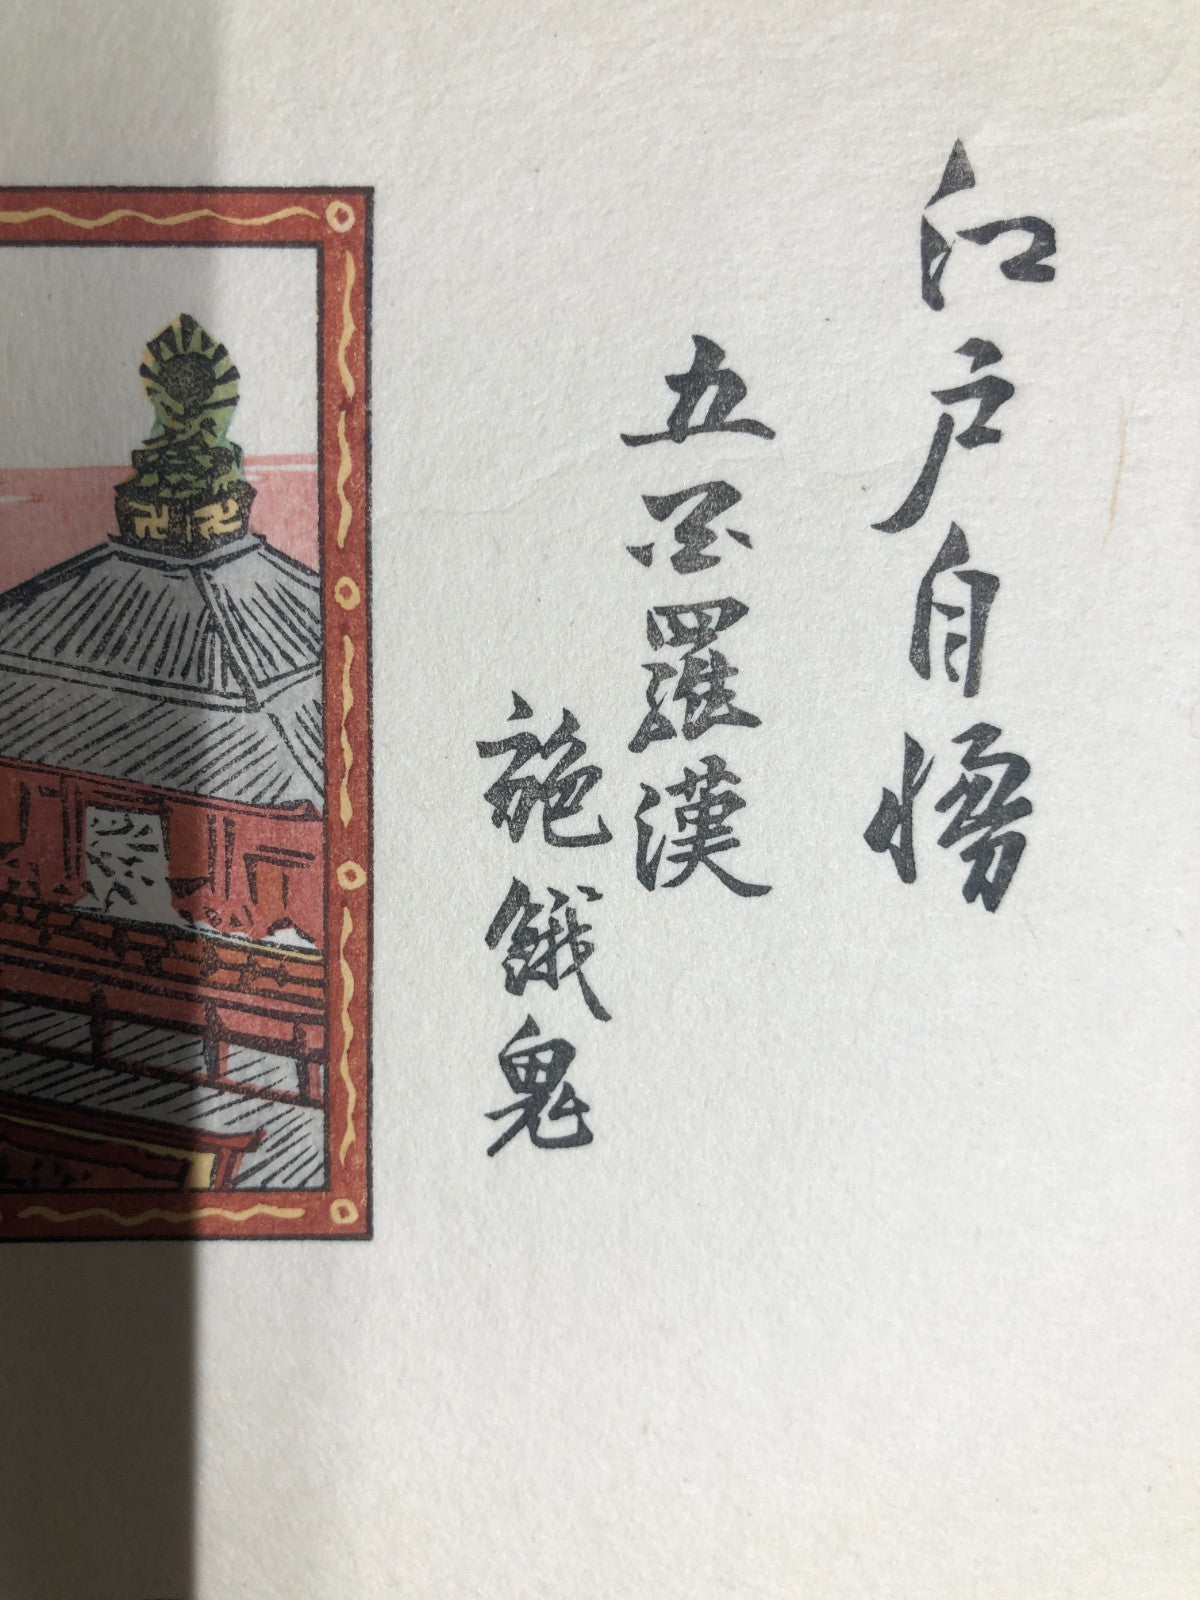 江戸自慢
五百羅漢
施餓鬼
卍 卍